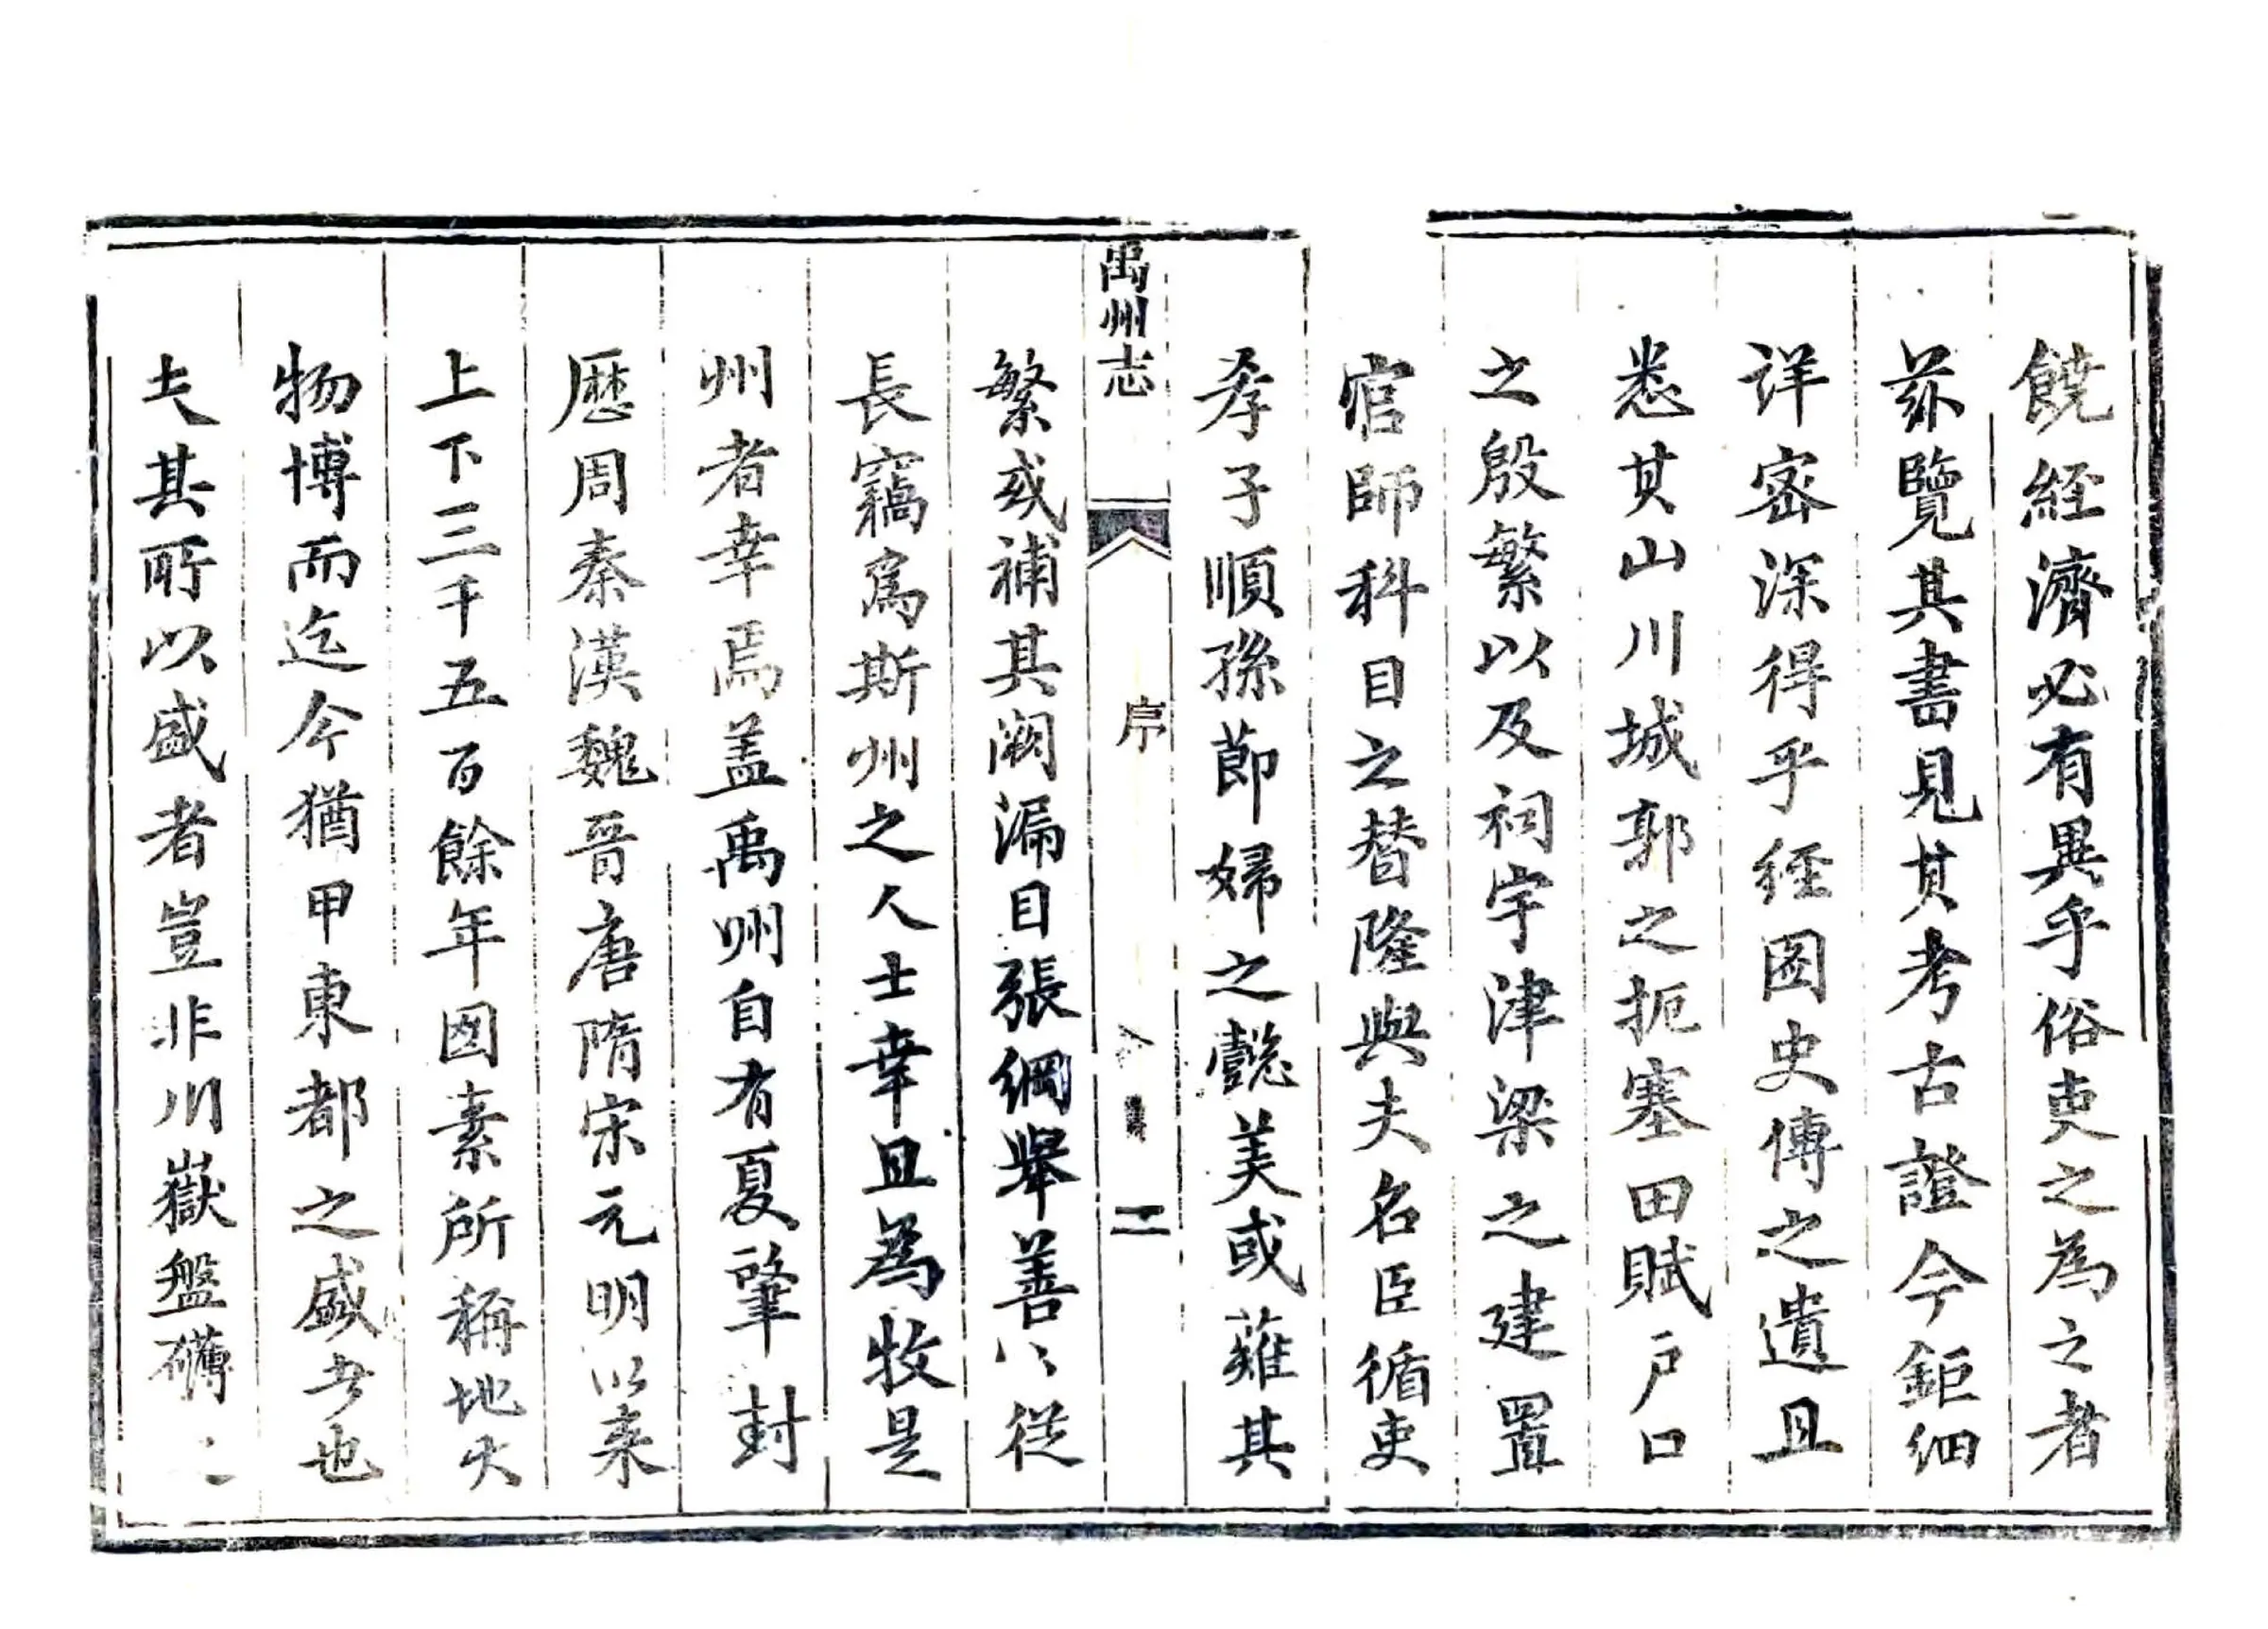 饒經濟必有異乎俗吏之為之者
茲覽其書見其考古證今鉅細
详密深得乎經图史傳之遺且
悉其山川城郭之扼塞田賦户口
之殷繁以及祠宇津梁之建置
官師科目之替隆與夫名臣循吏
孝子順孫節婦之懿美或薙其
禹州志
序
二
繁或補其闕漏目張綱舉善善從
長竊為斯州之人士幸且為牧是
州者幸焉盖禹州自有夏肇封
歷周秦漢魏晋唐隋宋元明以来
上下三千五百餘年固素所稱地大
物博而迄今猶甲東都之盛者也
夫其所以盛者豈非川嶽盤礴之